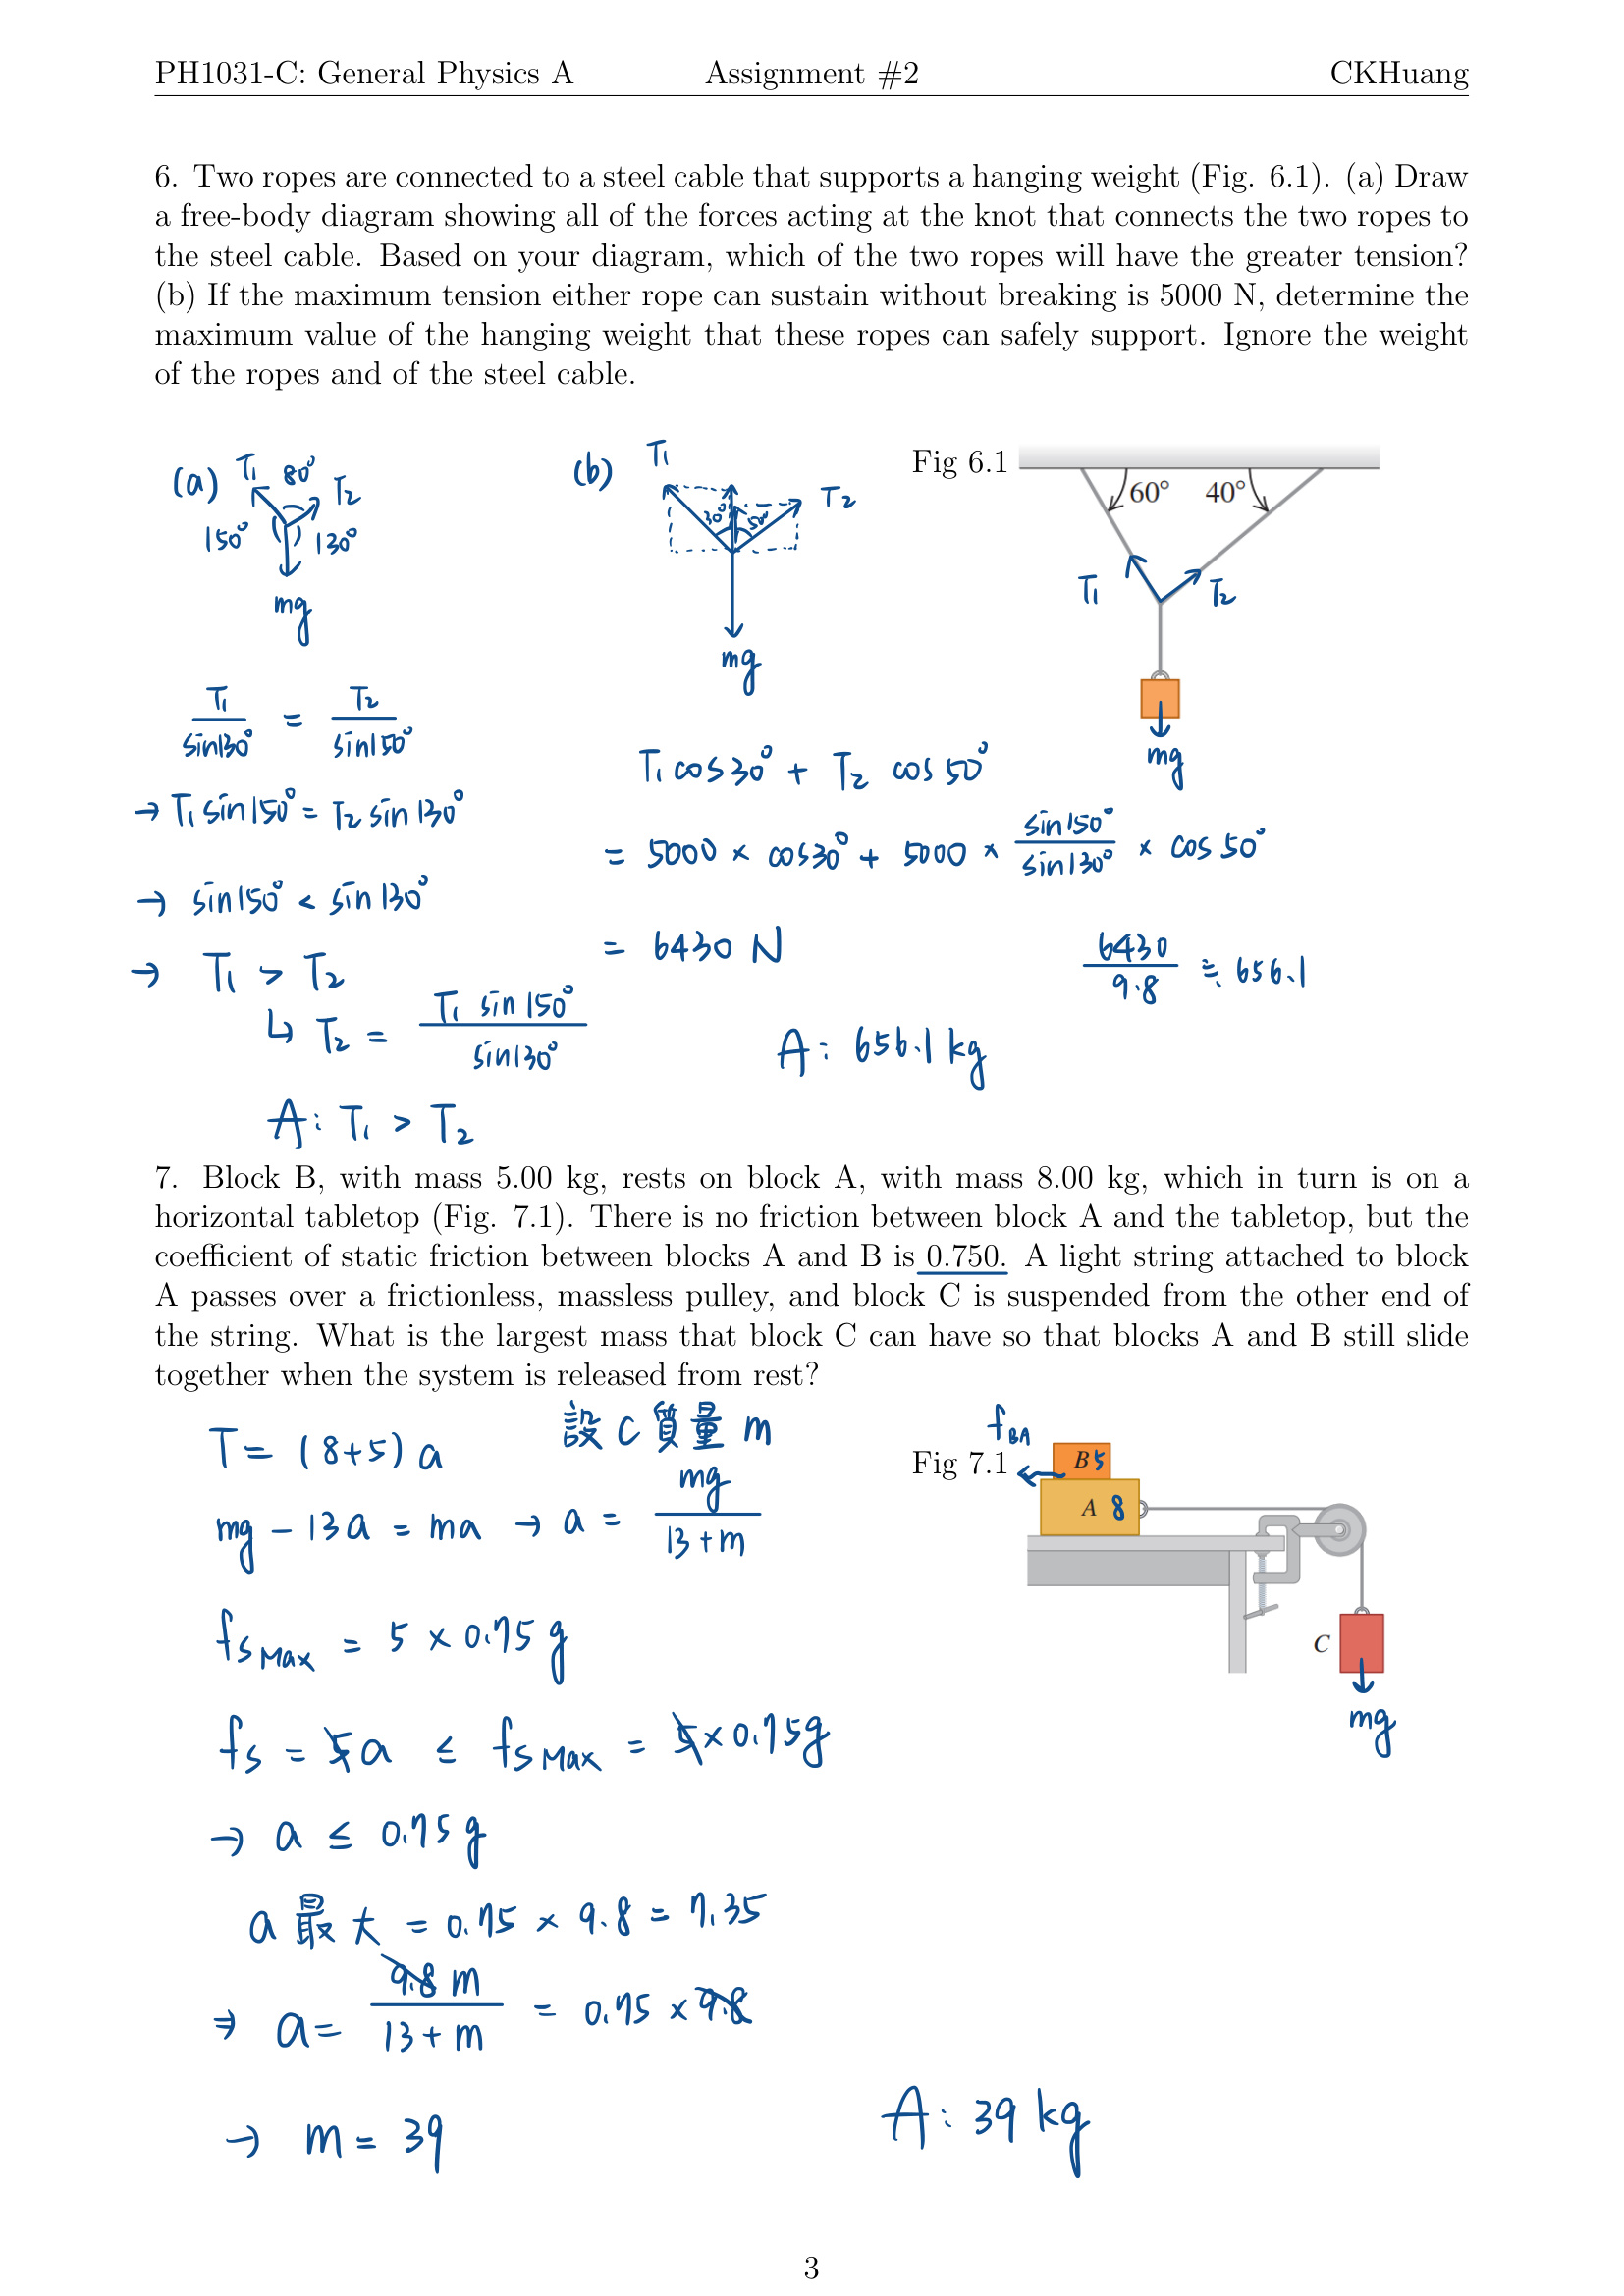 PH1031-C: General Physics A Assignment #2 CKHuang
6. Two ropes are connected to a steel cable that supports a hanging weight (Fig. 6.1). (a) Draw
a free-body diagram showing all of the forces acting at the knot that connects the two ropes to
the steel cable. Based on your diagram, which of the two ropes will have the greater tension?
(b) If the maximum tension either rope can sustain without breaking is 5000 N, determine the
maximum value of the hanging weight that these ropes can safely support. Ignore the weight
of the ropes and of the steel cable.
(a) T₁ 80° T₂
150° 130°
mg
T₁/sin130° = T₂/sin150°
→ T₁ sin150° = T₂ sin130°
→ sin150° < sin130°
→ T₁ > T₂
↳ T₂ = T₁ sin150° / sin130°
A: T₁ > T₂
(b) T₁
30° 50° T₂
mg
T₁ cos30° + T₂ cos50°
= 5000 × cos30° + 5000 × sin150°/sin130° × cos50°
= 6430 N
6430/9.8 ≒ 656.1
A: 656.1 kg
Fig 6.1
60° 40°
T₁ T₂
mg
7. Block B, with mass 5.00 kg, rests on block A, with mass 8.00 kg, which in turn is on a
horizontal tabletop (Fig. 7.1). There is no friction between block A and the tabletop, but the
coefficient of static friction between blocks A and B is 0.750. A light string attached to block
A passes over a frictionless, massless pulley, and block C is suspended from the other end of
the string. What is the largest mass that block C can have so that blocks A and B still slide
together when the system is released from rest?
T = (8+5) a 設 C 質量 m
mg - 13a = ma → a = mg/(13+m)
fs Max = 5 × 0.75 g
fs = 5a ≤ fs Max = 5 × 0.75g
→ a ≤ 0.75 g
a 最大 = 0.75 × 9.8 = 7.35
⇒ a = 9.8 m/(13+m) = 0.75 × 9.8
→ m = 39
A: 39 kg
Fig 7.1
fBA
B 5
A 8
C
mg
3